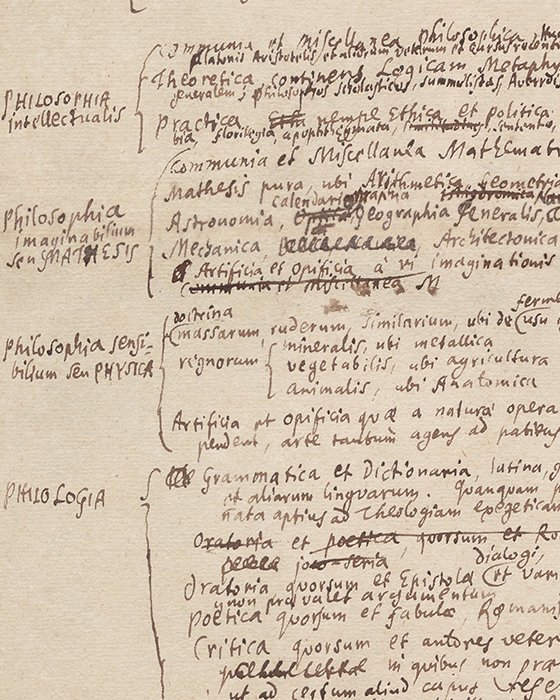 PHILOSOPHIA
intellectualis
Communia et Miscellanea philosophica
platonis Aristotelis et aliorum veterum et
Theoretica, continens Logicam Metaphy
generalem; philosophos Scholasticos, Summulistas
practica, nempe Ethica, et politica
florilegia, apophthegmata,
Philosophia
imaginabilium
seu MATHESIS
Communia et Miscellanea Mathemat
Mathesis pura, ubi Arithmetica, Geometria
calendariographia
Astronomia, Optica, Geographia generalis,
Mechanica, Architectonica
Artificia et Opificia à vi imaginationis
Communia et Miscellanea M
Philosophia sensi-
bilium seu PHYSICA
doctrina
massarum, ruderum, similarium, ubi de usu
regnorum
mineralis, ubi metallica
vegetabilis, ubi agricultura
animalis, ubi Anatomica
Artificia et Opificia quæ a natura opera
pendent, arte tantum agens ad patiens
PHILOLOGIA
Grammatica et Dictionaria, latina, g
et aliarum linguarum. Quanquam
nata aptius ad Theologiam exegeticam
Oratoria et poetica, quorsum et Ro
joco-seria
dialogi,
Oratoria quorsum et Epistolæ et vari
non prævalet argumentum
Poëtica quorsum et fabulæ, Romani
Critica quorsum et autores veter
in quibus non præ
ut ad certum aliud caput refe